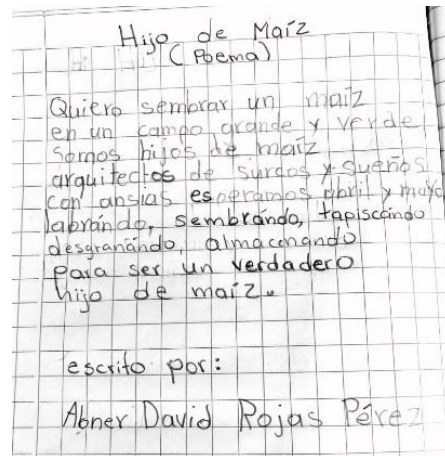 Hijo de Maíz
(Poema)
Quiero sembrar un maíz
en un campo grande y verde
somos hijos de maíz
arquitectos de surcos y sueños
con ansias esperamos abril y mayo
labrando, sembrando, tapiscando
desgranando, almacenando
para ser un verdadero
hijo de maíz.
escrito por:
Abner David Rojas Pérez